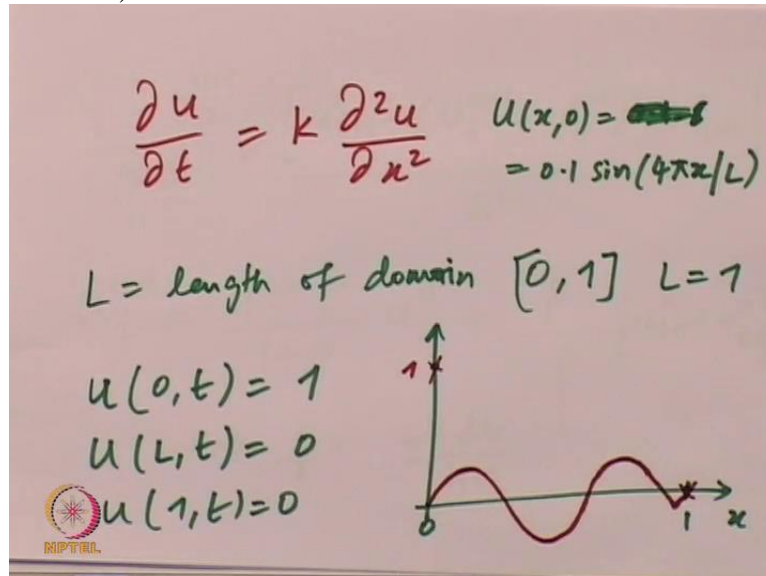 ∂u/∂t = k ∂²u/∂x²
u(x,0) =
= 0.1 sin(4πx/L)
L = length of domain [0,1] L=1
u(0,t) = 1
u(L,t) = 0
u(1,t)=0
1
0
1
x
NPTEL